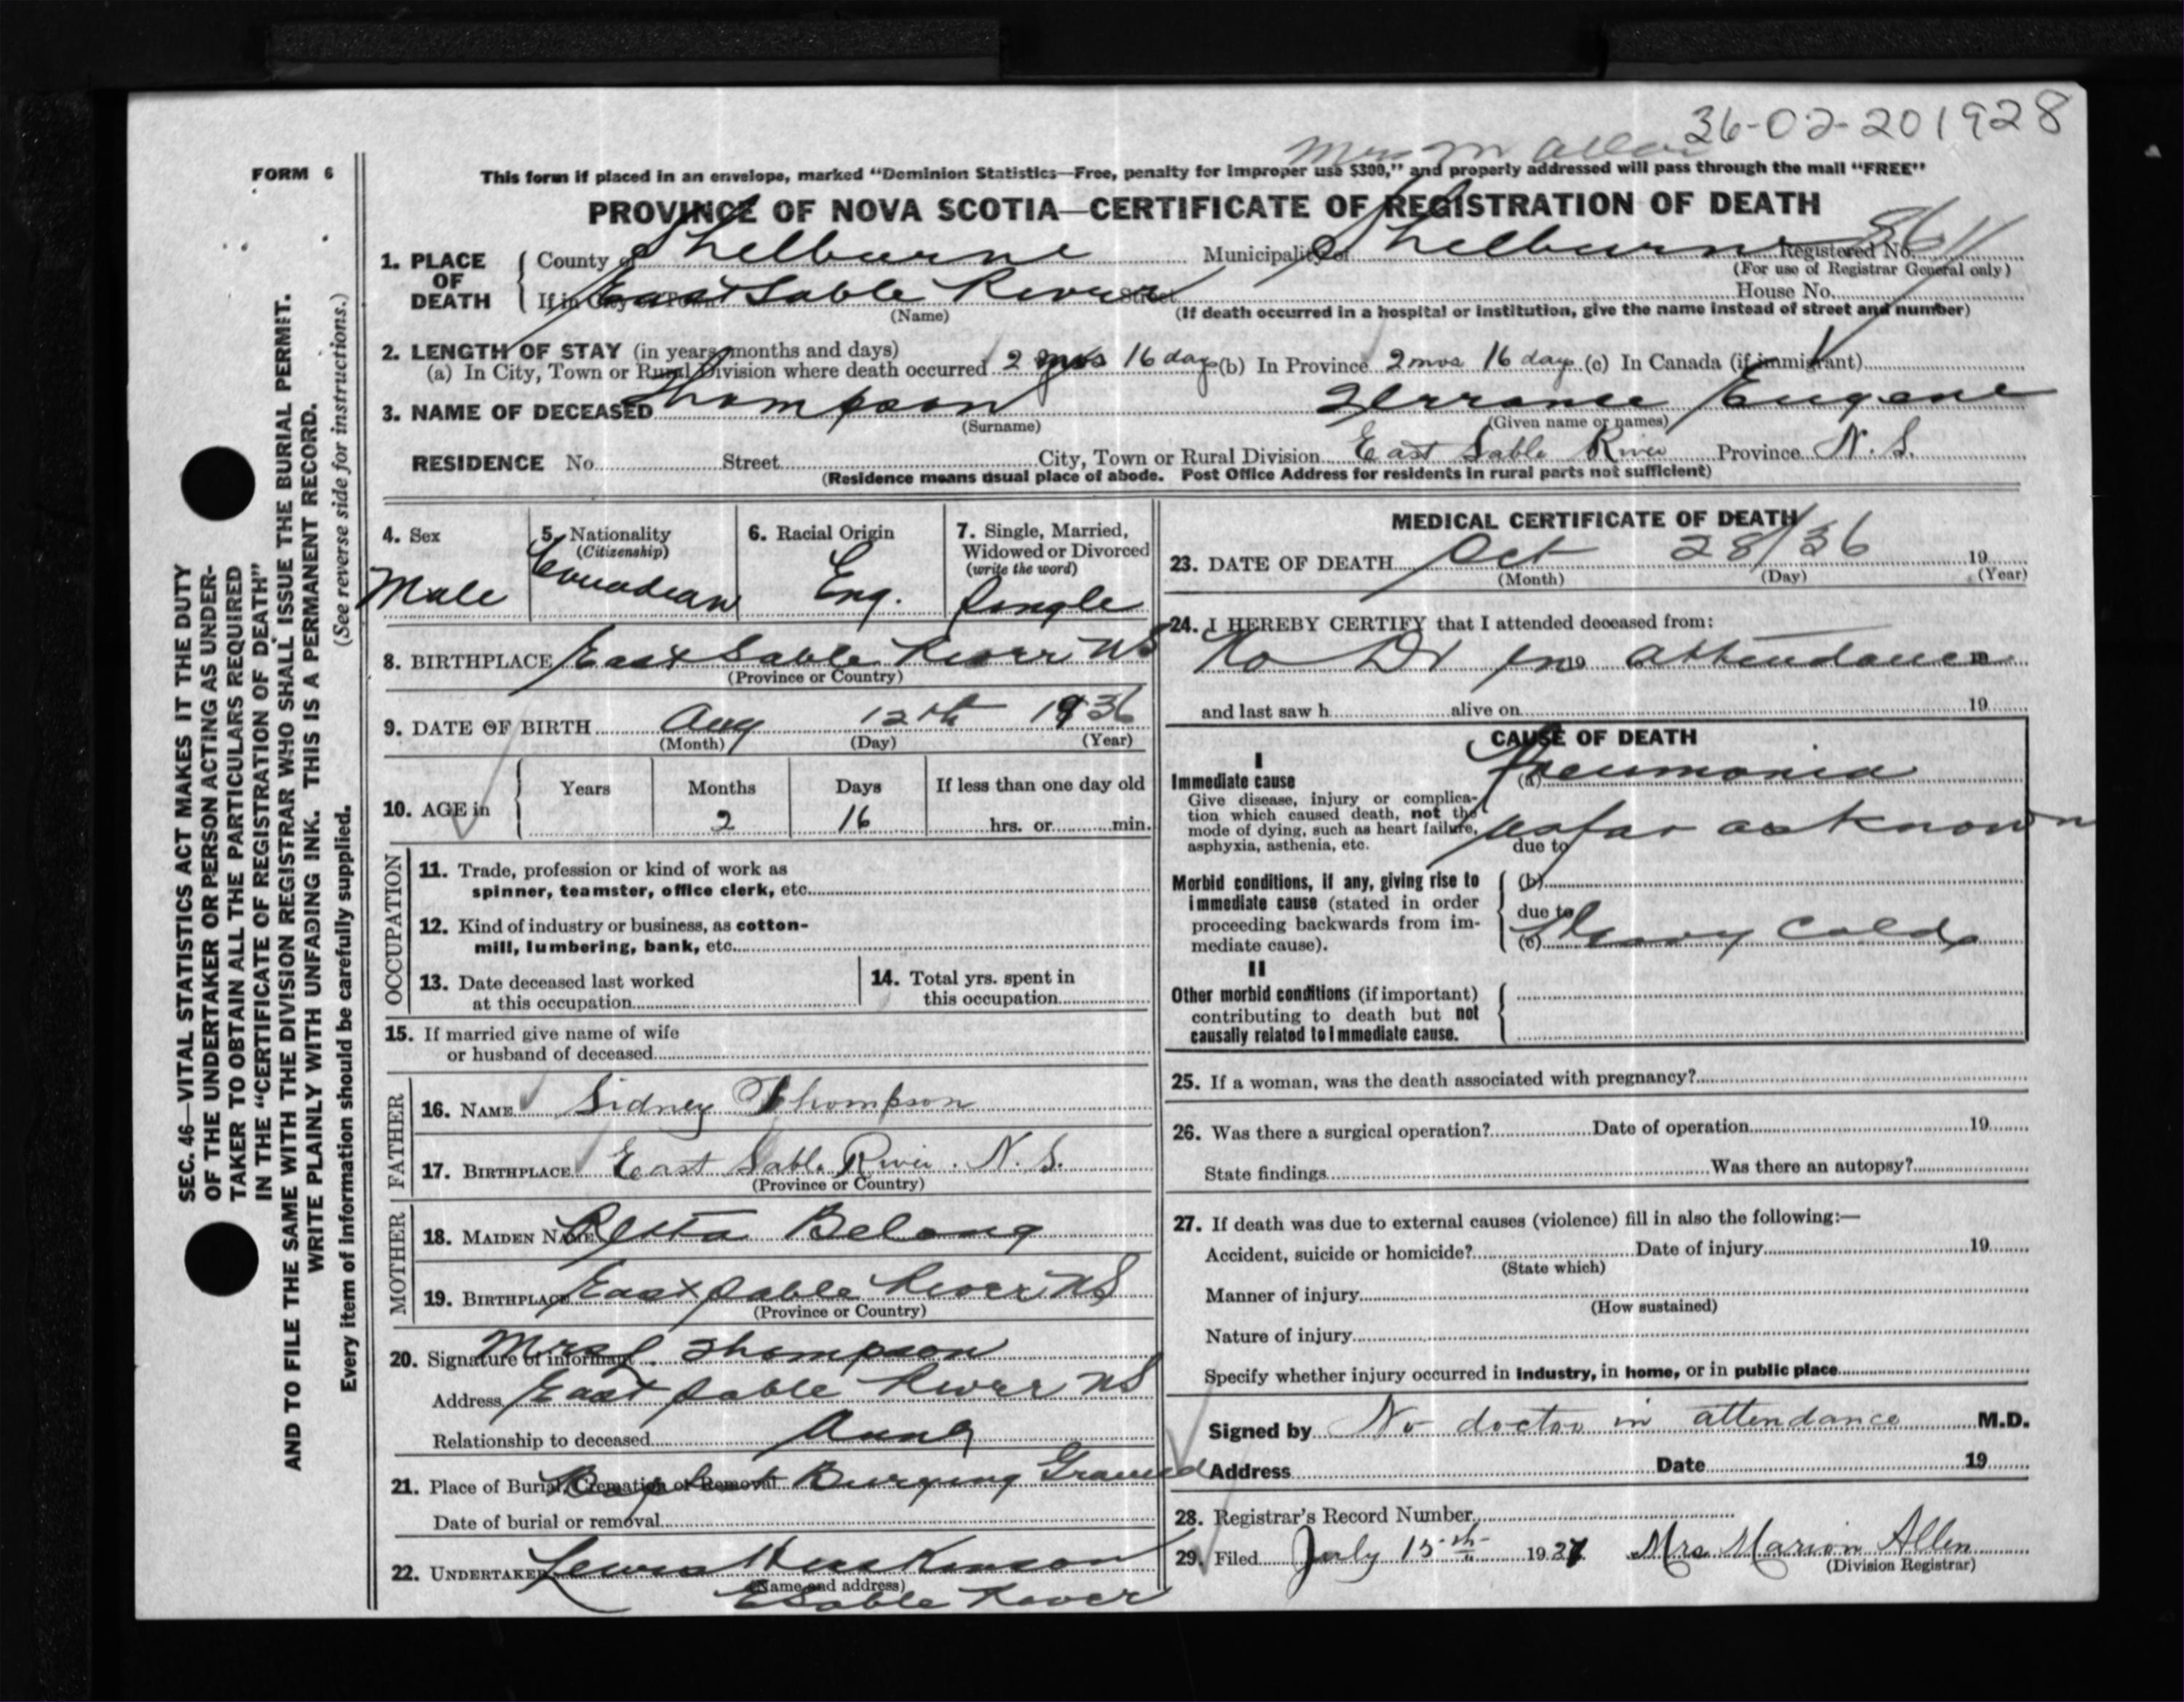 36-02-201928
Mrs M Allen
FORM 6
This form if placed in an envelope, marked "Dominion Statistics—Free, penalty for improper use $300," and properly addressed will pass through the mail "FREE"
PROVINCE OF NOVA SCOTIA—CERTIFICATE OF REGISTRATION OF DEATH
1. PLACE OF DEATH County of Shelburne Municipality of Shelburne Registered No.
(For use of Registrar General only)
If in City or Town East Sable River Street House No.
(Name) (If death occurred in a hospital or institution, give the name instead of street and number)
2. LENGTH OF STAY (in years, months and days)
(a) In City, Town or Rural Division where death occurred 2 mos 16 days (b) In Province 2 mos 16 days (c) In Canada (if immigrant)
3. NAME OF DECEASED Thompson Terrance Eugene
(Surname) (Given name or names)
RESIDENCE No. Street City, Town or Rural Division East Sable River Province N. S.
(Residence means usual place of abode. Post Office Address for residents in rural parts not sufficient)
4. Sex Male
5. Nationality (Citizenship) Canadian
6. Racial Origin Eng.
7. Single, Married, Widowed or Divorced (write the word) Single
8. BIRTHPLACE East Sable River NS
(Province or Country)
9. DATE OF BIRTH Aug 12th 1936
(Month) (Day) (Year)
10. AGE in Years Months Days If less than one day old
2 16 hrs. or min.
OCCUPATION
11. Trade, profession or kind of work as
spinner, teamster, office clerk, etc.
12. Kind of industry or business, as cotton-
mill, lumbering, bank, etc.
13. Date deceased last worked
at this occupation
14. Total yrs. spent in
this occupation
15. If married give name of wife
or husband of deceased
FATHER
16. NAME Sidney Thompson
17. BIRTHPLACE East Sable River. N. S.
(Province or Country)
MOTHER
18. MAIDEN NAME Belong
19. BIRTHPLACE East Sable River NS
(Province or Country)
20. Signature of informant Mrs Thompson
Address East Sable River NS
Relationship to deceased
21. Place of Burial, Cremation or Removal Baptist Burying Ground
Date of burial or removal
22. UNDERTAKER Lewis
(Name and address)
E Sable River
MEDICAL CERTIFICATE OF DEATH
23. DATE OF DEATH Oct 28/36 19
(Month) (Day) (Year)
24. I HEREBY CERTIFY that I attended deceased from:
No Dr in 19 attendance
and last saw h alive on 19
CAUSE OF DEATH
I
Immediate cause (a) Pneumonia
Give disease, injury or complica-
tion which caused death, not the
mode of dying, such as heart failure,
asphyxia, asthenia, etc.
as far as known
due to
Morbid conditions, if any, giving rise to
immediate cause (stated in order
proceeding backwards from im-
mediate cause).
(b)
due to
(c) Heavy Colds
II
Other morbid conditions (if important)
contributing to death but not
causally related to immediate cause.
25. If a woman, was the death associated with pregnancy?
26. Was there a surgical operation? Date of operation 19
State findings Was there an autopsy?
27. If death was due to external causes (violence) fill in also the following:—
Accident, suicide or homicide? Date of injury 19
(State which)
Manner of injury
(How sustained)
Nature of injury
Specify whether injury occurred in industry, in home, or in public place
Signed by No doctor in attendance M.D.
Address Date 19
28. Registrar's Record Number
29. Filed July 15th 1937 Mrs Marion Allen
(Division Registrar)
SEC. 46—VITAL STATISTICS ACT MAKES IT THE DUTY
OF THE UNDERTAKER OR PERSON ACTING AS UNDER-
TAKER TO OBTAIN ALL THE PARTICULARS REQUIRED
IN THE "CERTIFICATE OF REGISTRATION OF DEATH"
AND TO FILE THE SAME WITH THE DIVISION REGISTRAR WHO SHALL ISSUE THE BURIAL PERMIT.
WRITE PLAINLY WITH UNFADING INK. THIS IS A PERMANENT RECORD.
Every item of information should be carefully supplied. (See reverse side for instructions.)